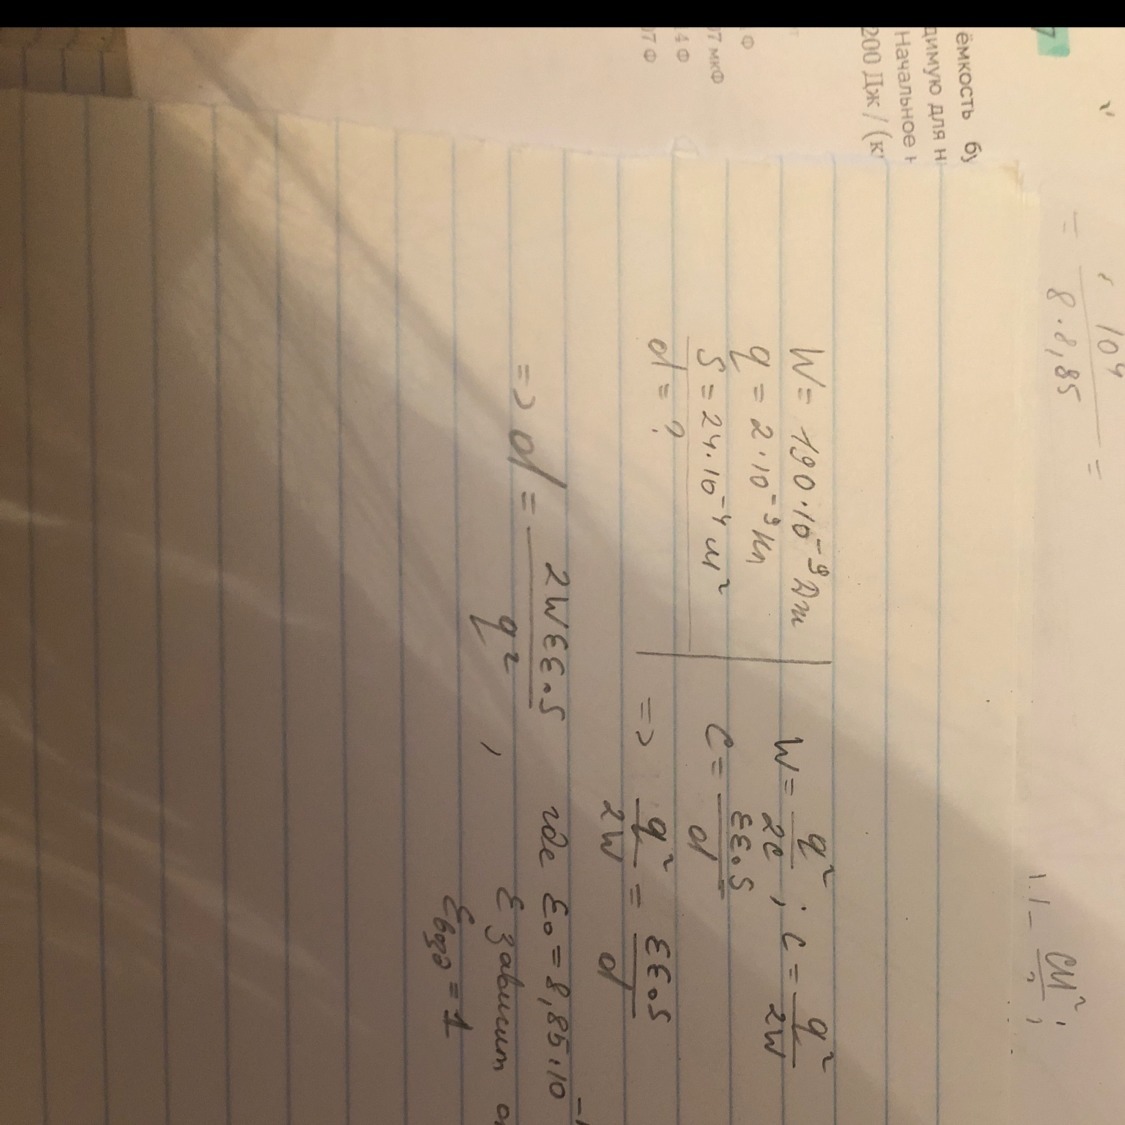 7
ёмкость
димую для н
Начальное н
200 Дж / (к
Ф
07 мкФ
4 Ф
07 Ф
10⁴
= ――― =
8·8,85
см²;
W = 190·10⁻⁹ Дж
q = 2·10⁻⁹ Кл
S = 24·10⁻⁴ м²
d = ?
W = q²/2C ; C = q²/2W
C = εε₀S/d
=> q²/2W = εε₀S/d
=> d = 2Wεε₀S/q² ,
где ε₀ = 8,85·10
ε зависит о
ε возд = 1